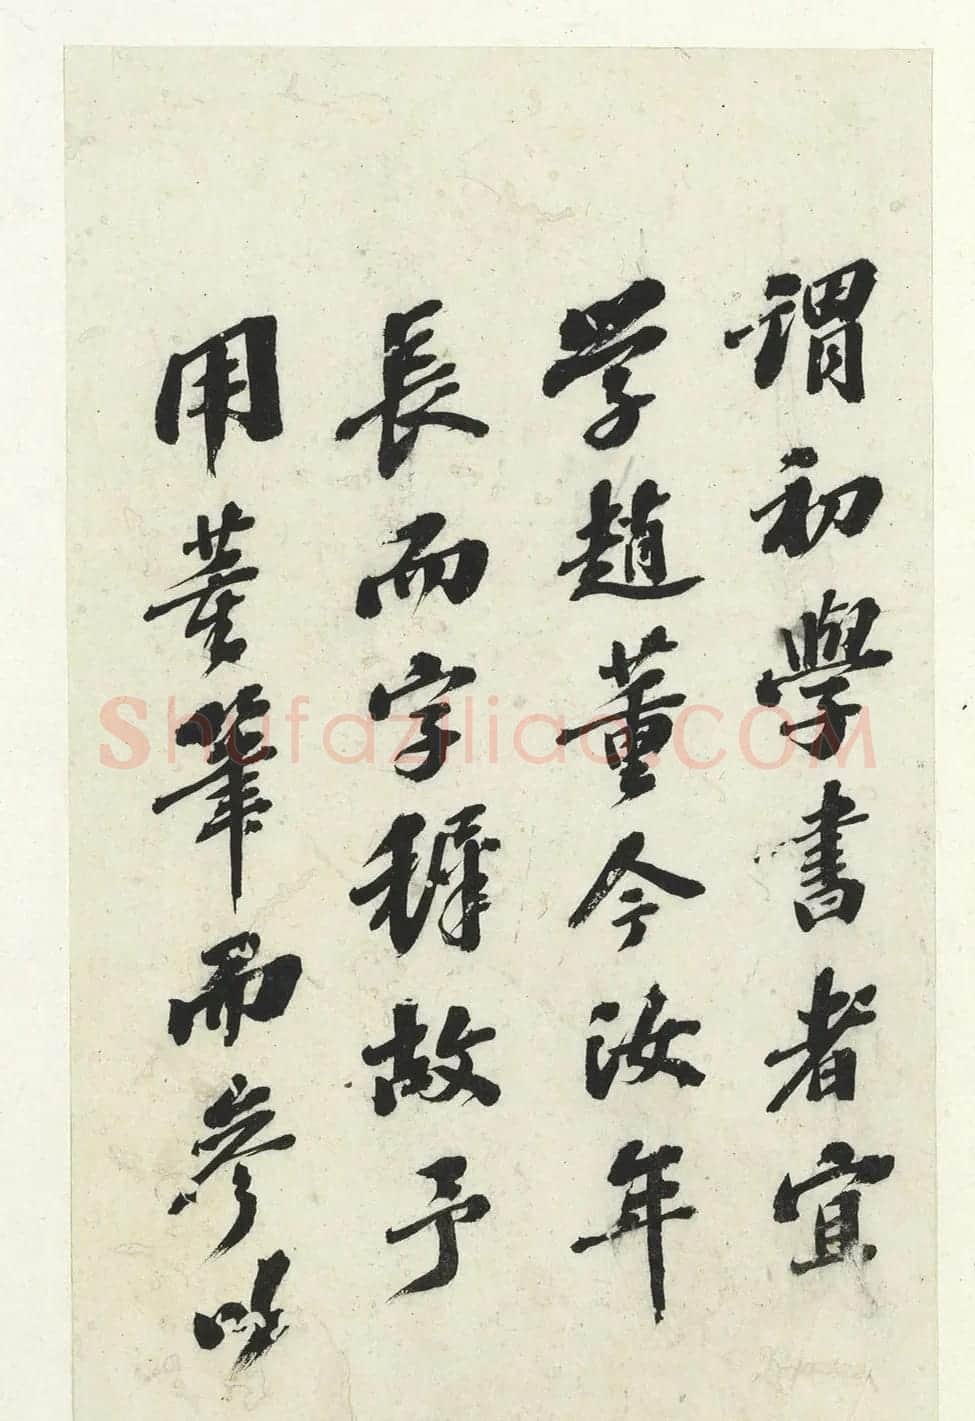 謂初學書者宜
学趙董今汝年
長而字穉故予
用董筆而參以
Shufaziliao.COM